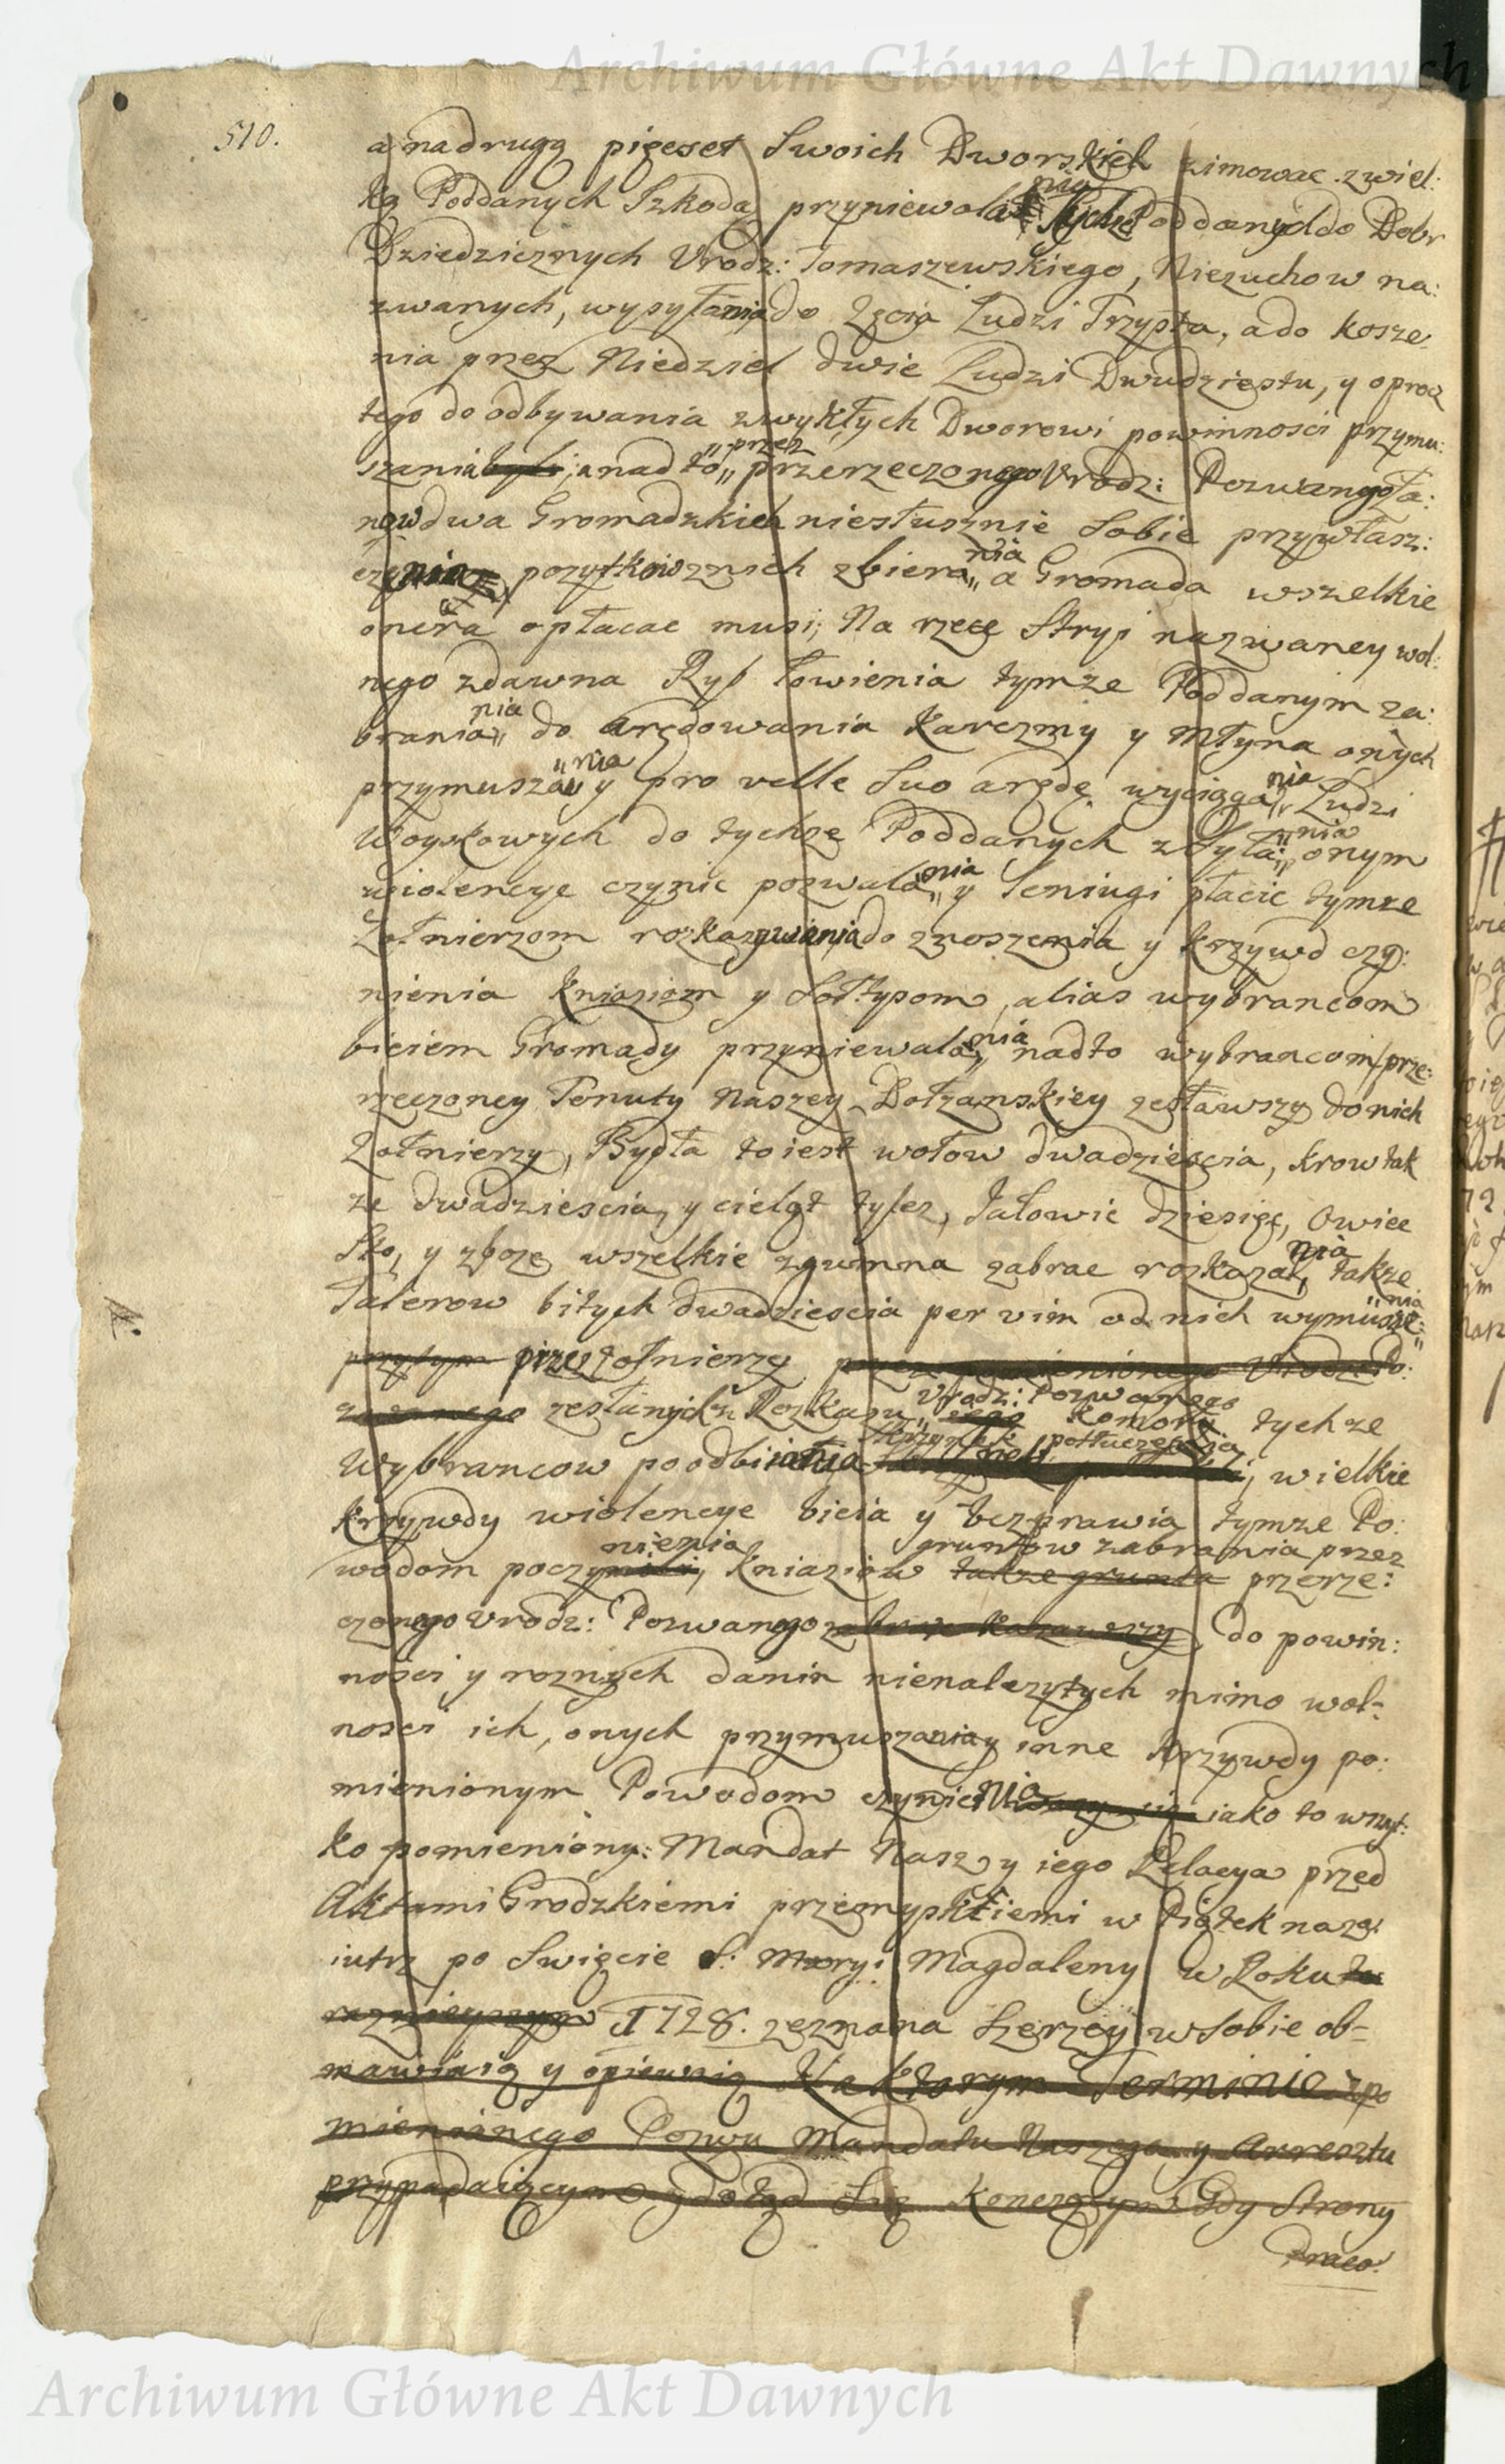 Archiwum Główne Akt Dawnych
510.
a na drugą pięeset Swoich Dworskich zimowac z wiel:
ką Poddanych Szkodą przyniewala nia Tychze Poddanych do Dobr
Dziedzicznych Urodz: Tomaszewskiego, Niezuchow na:
zwanych, wysyłania do Zęcia Ludzi Trzysta, a do kosze
nia przez Niedziel dwie Ludzi Dwudziestu, y oprocz
tego do odbywania zwykłych Dworowi powinnosci przymu:
szania byli; a nad to przez przerzeczonego Urodz: Pozwanego Ła:
now dwa Gromadzkich niesłusznie Sobie przywłasz:
czenia pozytkow znich zbiera nia a Gromada wszelkie
onera opłacac musi; Na rzece Stryi nazwaney wol:
nego zdawna Ryb łowienia tymze Poddanym za:
brania nia do arędowania Karczmy y Młyna onych
przymusza nia y pro velle Suo arędę wyciąga nia Ludzi
Woyskowych do tychze Poddanych zsyła: nia onym
wiolencye czynic pozwala nia y Leniugi płacic tymze
Zołnierzom rozkazywania do znoszenia y krzywd czy:
nienia Kniaziom y Sołtysom, alias wybrancom
biciem Gromady przyniewala nia nadto wybrancom prze:
rzeczoney Tenuty Naszey Dołzanskiey zesławszy do nich
Zołnierzy, Bydła to iest wołow dwadziescia, krow tak
ze dwadziescia, y cieląt tylez, Jałowic dziesięc, Owiec
Sto, y zboze wszelkie zgumna zabrac rozkazał nia takze
Talerow bitych dwadziescia per vim od nich wymusze: nia
przytym przez zołnierzy Urodz: Po:
zwanego zesłanych z Rozkazu Urodz: Pozwanego komory tychze
Wybrancow poodbiiania Skrzynek potłuczenia, wielkie
krzywdy wiolencye bicia y bezprawia tymze Po:
wodom poczynili nienia, Kniaziow takze grunta gruntow zabrania przez przerze:
czonego Urodz: Pozwanego zabrac, do powin:
nosci y roznych danin nienalezytych mimo wol-
nosci ich, onych przymuszania y inne krzywdy po:
mienionym Powodom czynienia iako to wszyt:
ko pomieniony: Mandat Nasz y iego Relacya przed
Aktami Grodzkiemi przemyskiemi w Piątek naza:
iutrz po Swięcie S: Maryi Magdaleny w Roku te
raznieyszym 1728. zeznana Szerzey w Sobie ob-
mawiaią y opiewaią Na ktorym Terminie zpo
mienionego Pozwu Mandatu Naszego y Arresztu
przypadaiącym y dotąd Się konczącym Gdy Strony
Praco:
Archiwum Główne Akt Dawnych